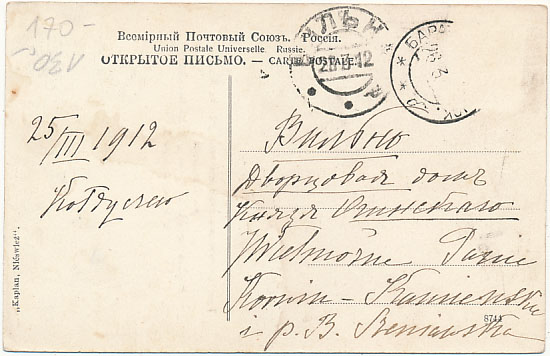 170-
Всемірный Почтовый Союзъ. Россія.
Union Postale Universelle. Russie.
ОТКРЫТОЕ ПИСЬМО. — CARTE POSTALE
26 3 12
25/III 1912
Вильно
Дворцовая домъ
Князя Огинскаго
Wielmożne Panie
Korwin-Kamieńska
i p. B.
„Kaplan, Nióswież”.
8744